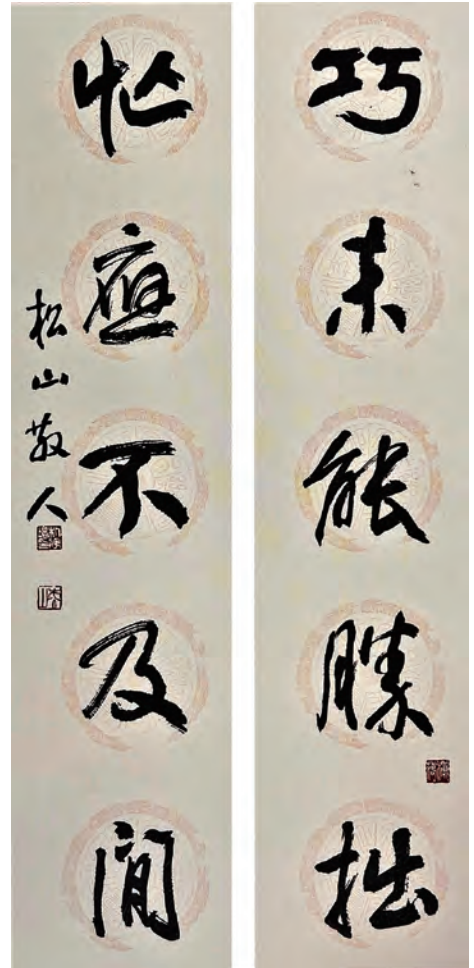 巧未能勝拙
忙應不及閒
松山散人